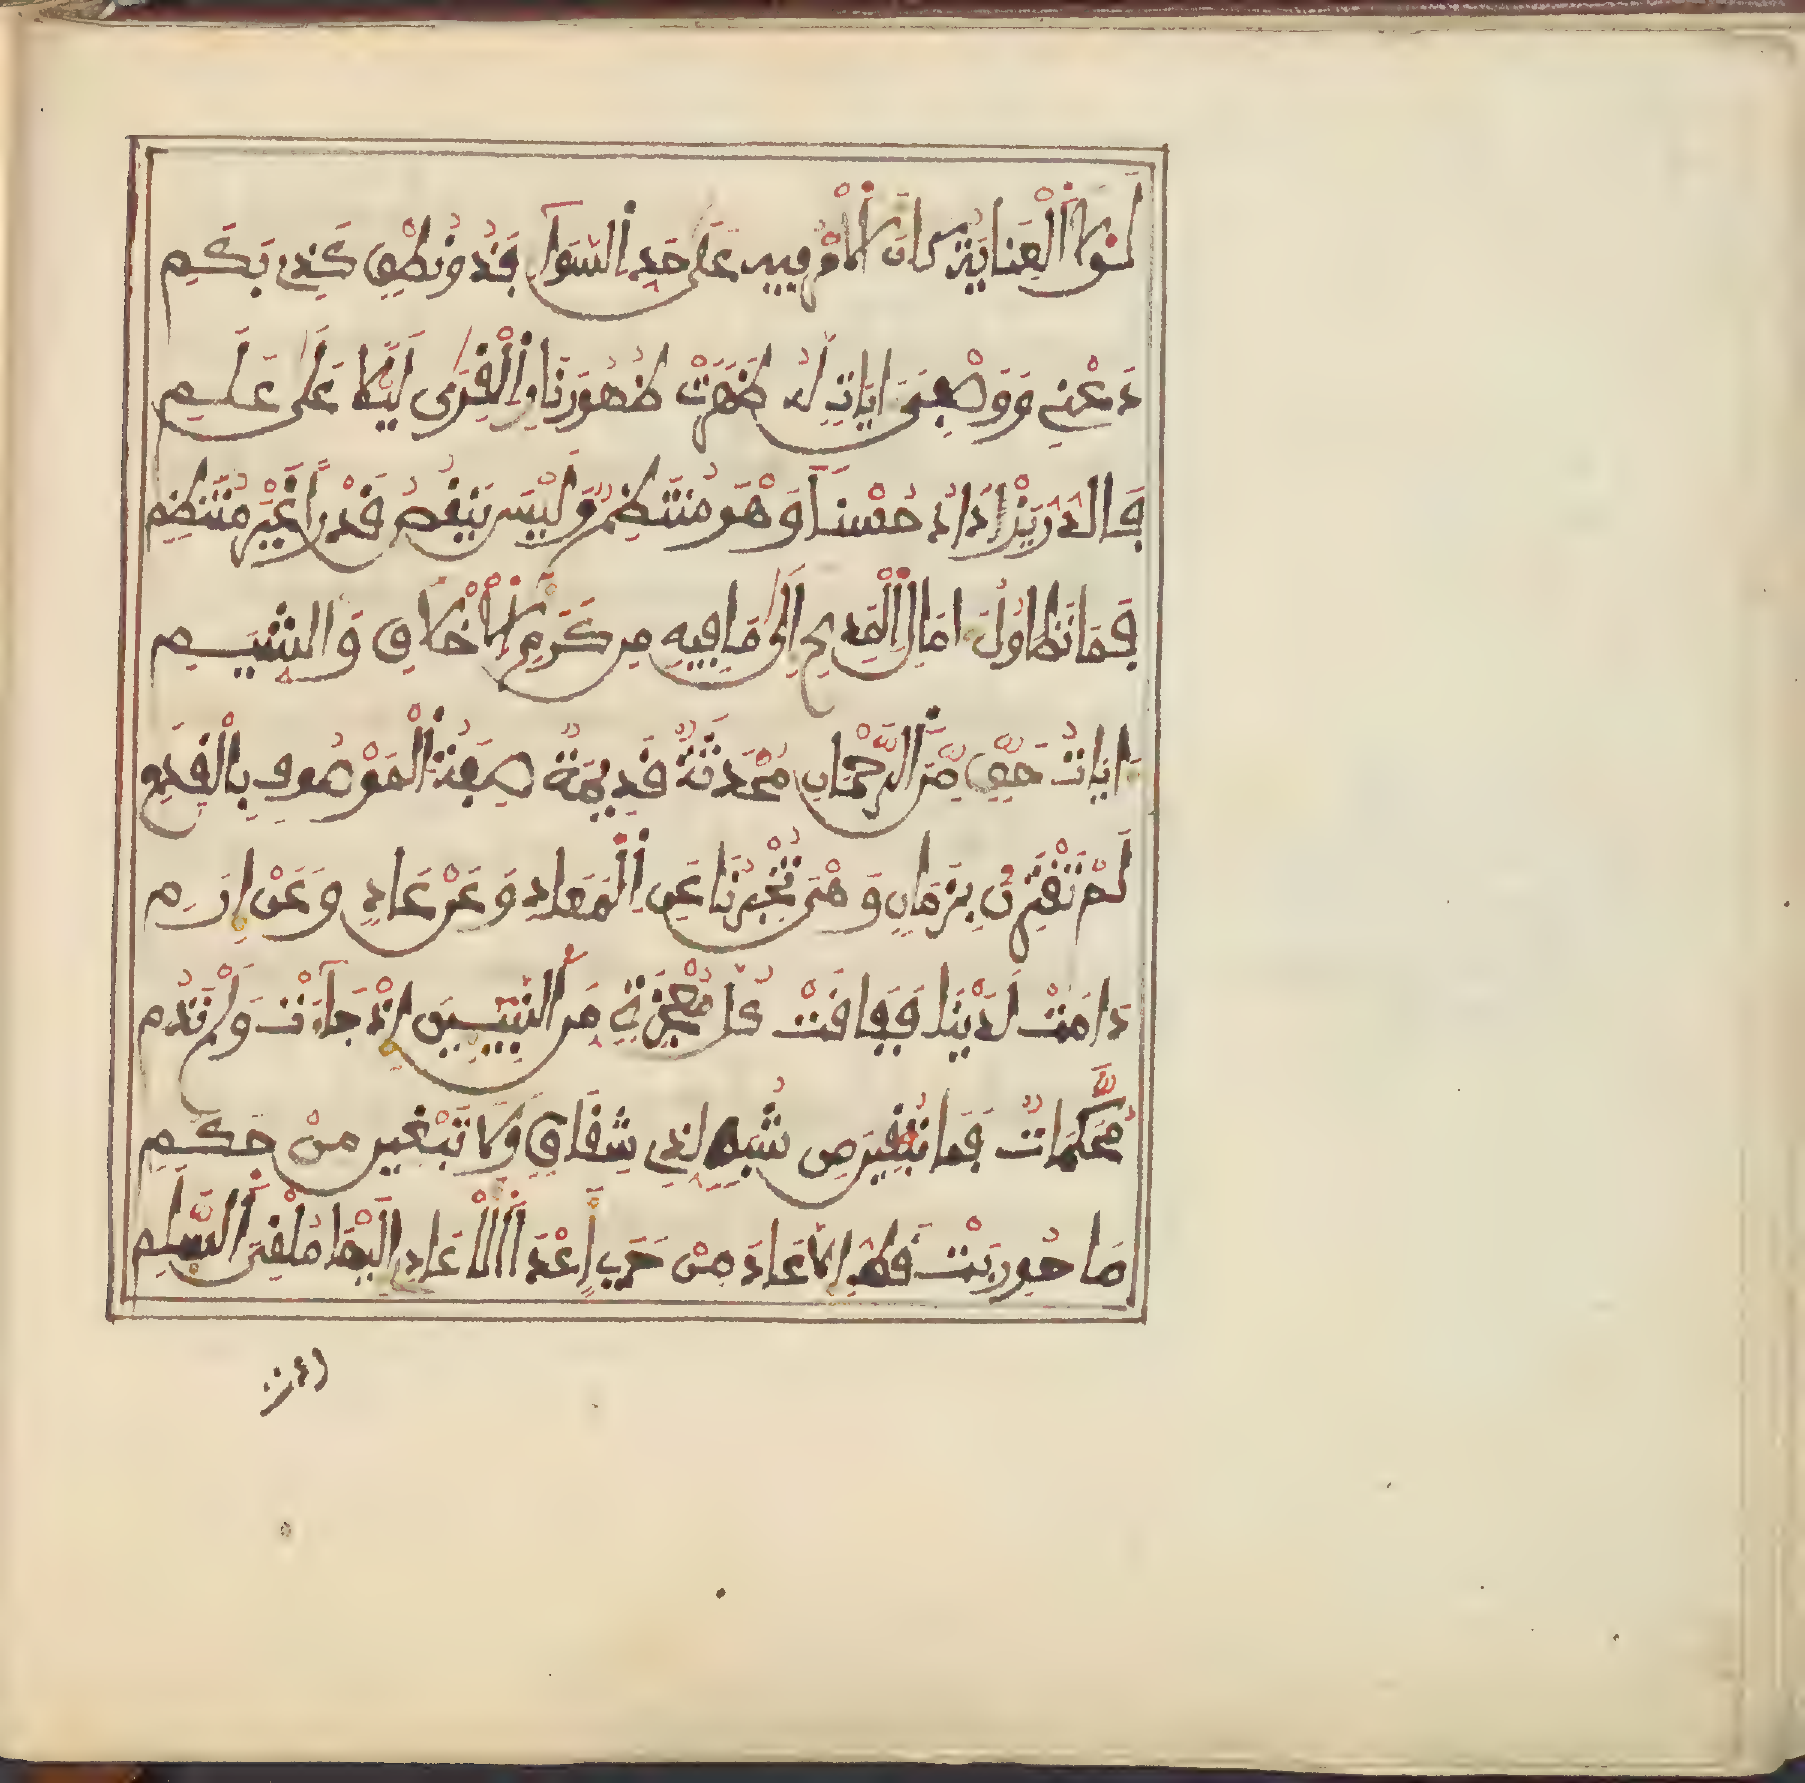 لَوْلَا الْعِنَايَةُ كَانَ الْأَمْرُ فِيهِ عَلَى حَدِّ السَّوَآءِ فَذُو نُطْقٍ كَذِي بَكَمِ
دَعْنِي وَوَصْفِيَ ءَايَاتٍ لَهُ ظَهَرَتْ ظُهُورَ نَارِ الْقِرَى لَيْلًا عَلَى عَلَمِ
فَالدُّرُّ يَزْدَادُ حُسْنًا وَهْوَ مُنْتَظِمٌ وَلَيْسَ يَنْقُصُ قَدْرًا غَيْرَ مُنْتَظِمِ
فَمَا تَطَاوُلُ ءَامَالِ الْمَدِيحِ إِلَى مَا فِيهِ مِن كَرَمِ الْأَخْلَاقِ وَالشِّيَمِ
ءَايَاتُ حَقٍّ مِّنَ الرَّحْمَانِ مُحْدَثَةٌ قَدِيمَةٌ صِفَةُ الْمَوْصُوفِ بِالْقِدَمِ
لَمْ تَقْتَرِنْ بِزَمَانٍ وَهْيَ تُخْبِرُنَا عَنِ الْمَعَادِ وَعَنْ عَادٍ وَعَنْ إِرَمِ
دَامَتْ لَدَيْنَا فَفَاقَتْ كُلَّ مُعْجِزَةٍ مِنَ النَّبِيِّينَ إِذْ جَآءَتْ وَلَمْ تَدُمِ
مُحَكَّمَاتٌ فَمَا تُبْقِينَ مِن شُبَهٍ لِذِي شِقَاقٍ وَلَا تَبْغِينَ مِنْ حَكَمِ
مَا حُورِبَتْ قَطُّ إِلَّا عَادَ مِنْ حَرَبٍ أَعْدَا الْأَعَادِي إِلَيْهَا مُلْقِيَ السَّلَمِ